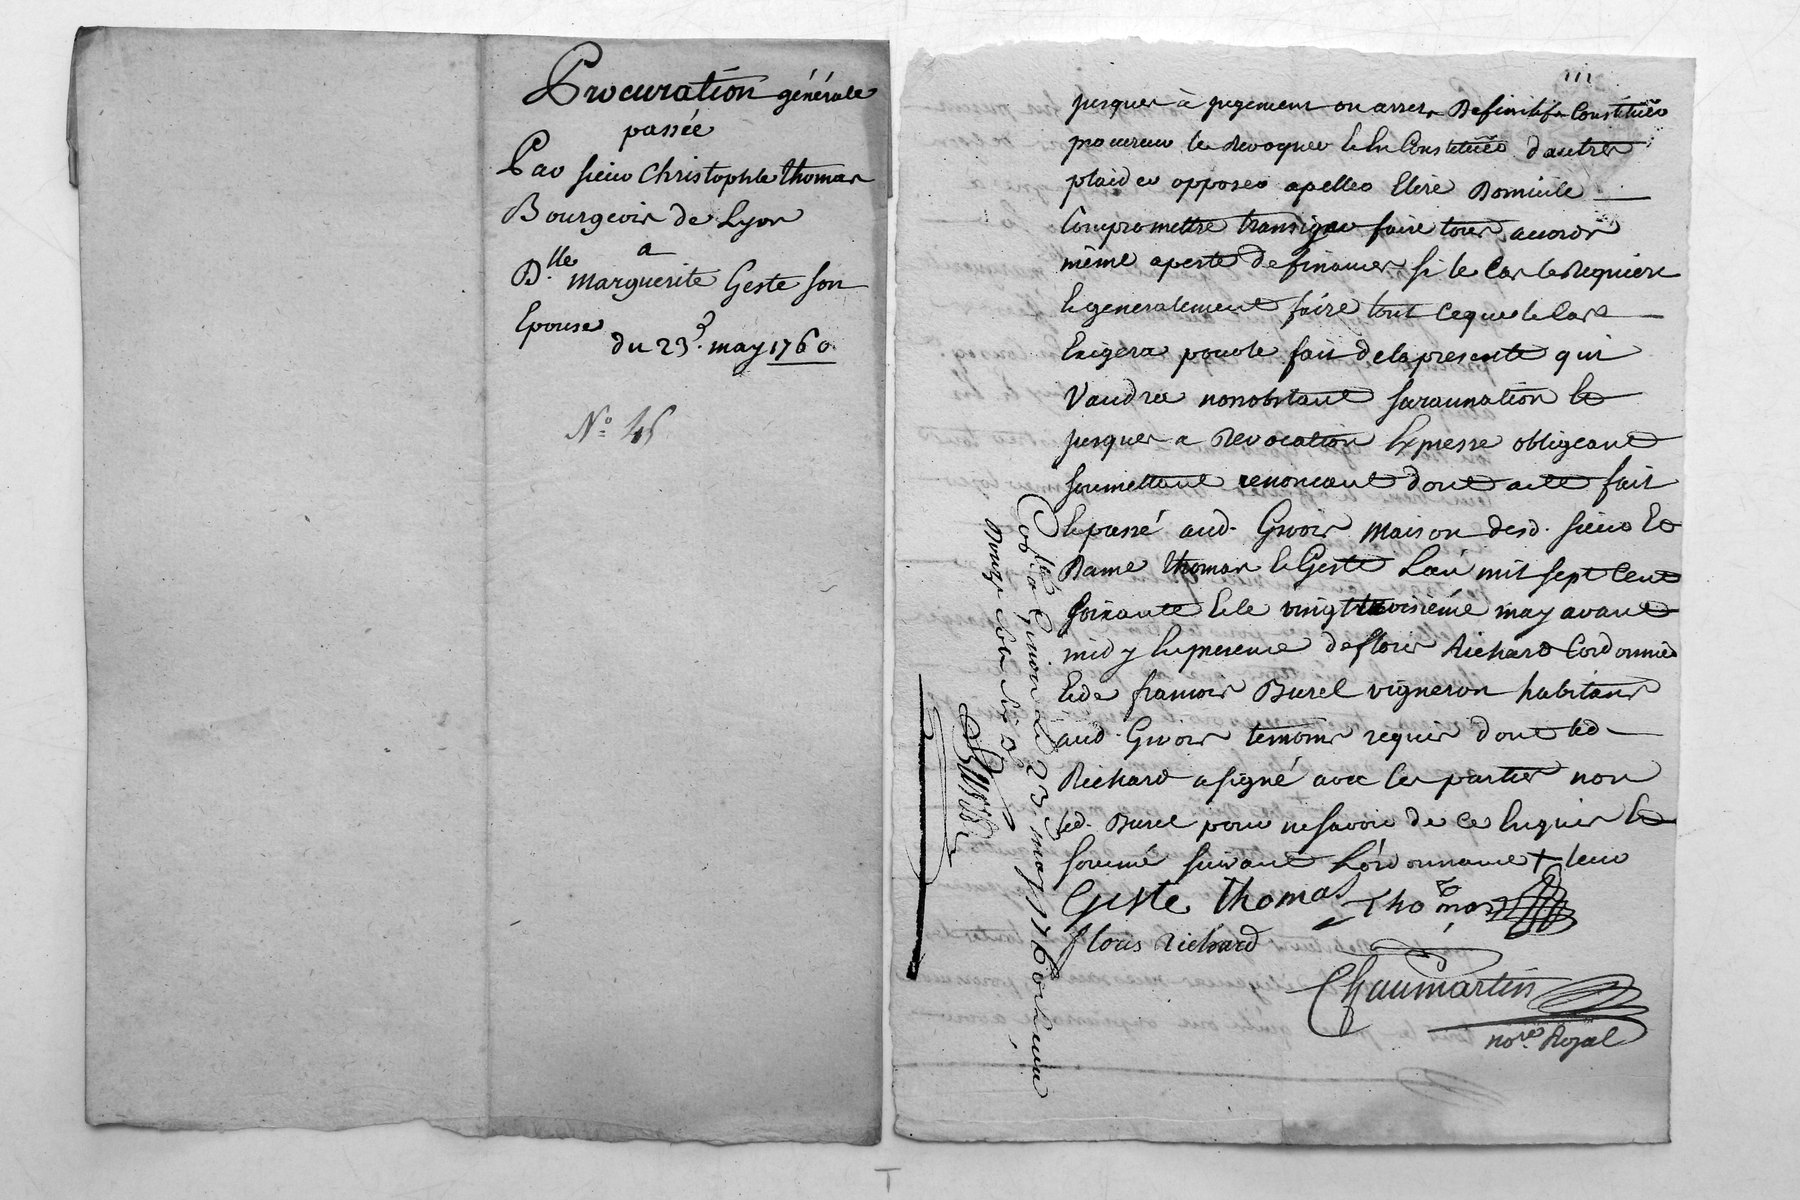 Procuration générale
passée
Par sieur Christophle thomas
Bourgeois de Lyon
a
D.lle marguerite Geste son
Epouse
du 23.e may 1760.
N.o 45
jusques à jugement ou arrest Definitif Constituer
procureur les revoquer et en Constituer d'autres
plaider opposer apeller Elire Domicile
Compromettre transiger faire tous accords
même a perte de finances si le Cas le Requiere
et generalement faire tout ceque le Cas
Exigera pouvoir fait de la presente qui
Vaudra nonobstant surannation et
jusques a Revocation Expresse obligeant
soumettant renoncant dont acte fait
et passé aud. Givors maison desd. sieur et
Dame thomas et Geste L'an mil sept Cent
soixante et le vingt troisiéme may avant
midy En presence de floris Richard Cordonnier
et de francois Burel vigneron habitans
aud. Givors temoins requis dont led.
Richard a signé avec les parties non
led. Burel pour ne savoir de ce Enquis et
sommé suivant L'ordonnance +
Geste thomas Thomas
floris Richard
Chaumartin
no.re Royal
Con.lé a Givors Le 23 may 1760 Recu
Douze sols six D.